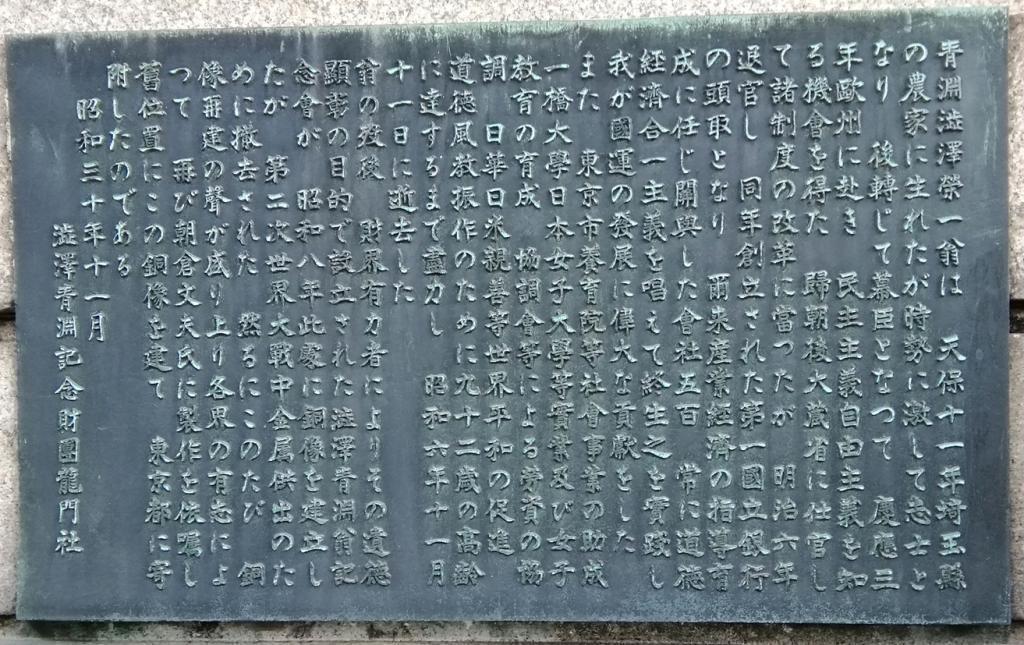 青淵澁澤榮一翁は 天保十一年埼玉縣
の農家に生れたが時勢に激して志士と
なり 後轉じて幕臣となつて 慶應三
年歐州に赴き 民主主義自由主義を知
る機會を得た 歸朝後大藏省に仕官し
て諸制度の改革に當つたが 明治六年
退官し 同年創立された第一國立銀行
の頭取となり 爾来産業經濟の指導育
成に任じ關與した會社五百 常に道德
經濟合一主義を唱えて終生之を實踐し
我が國運の發展に偉大な貢献をした
また 東京市養育院等社會事業の助成
一橋大學日本女子大學等實業及び女子
教育の育成 協調會等による労資の協
調 日華日米親善等世界平和の促進
道德風教振作のために九十二歳の高齢
に達するまで盡力し 昭和六年十一月
十一日に逝去した
翁の歿後 財界有力者によりその遺德
顯彰の目的で設立された澁澤青淵翁記
念會が 昭和八年此處に銅像を建立し
たが 第二次世界大戰中金属供出のた
めに撤去された 然るにこのたび 銅
像再建の聲が盛り上り各界の有志によ
つて 再び朝倉文夫氏に製作を依嘱し
舊位置にこの銅像を建て 東京都に寄
附したのである
昭和三十年十一月
澁澤青淵記念財團龍門社